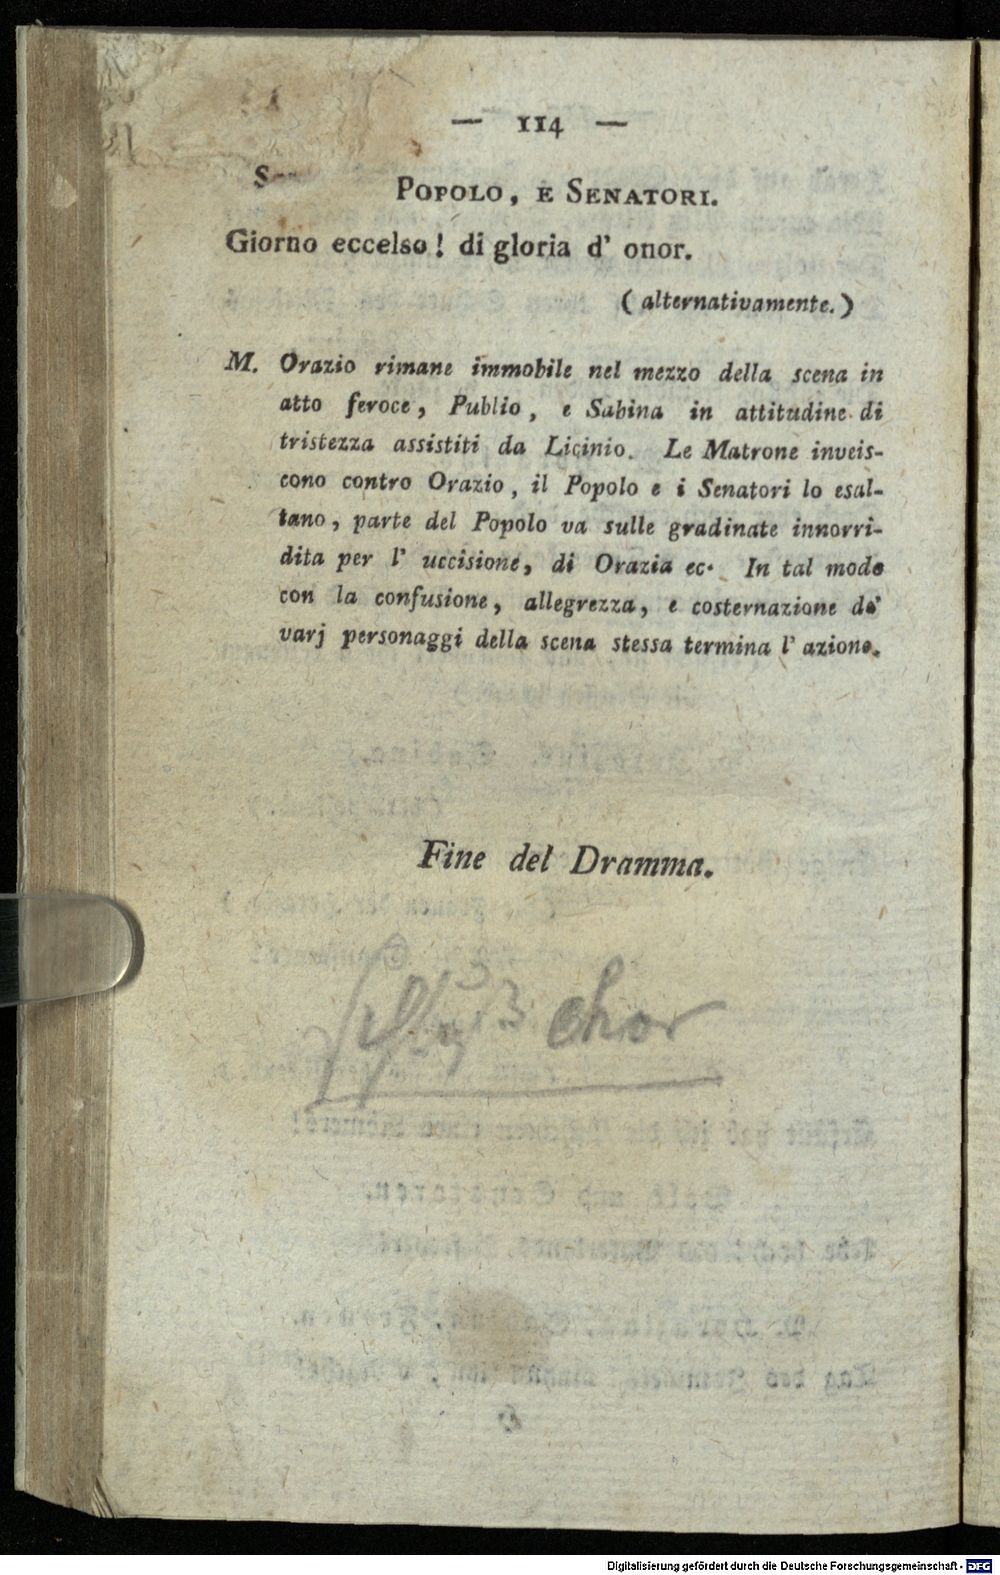 — 114 —
POPOLO, E SENATORI.
Giorno eccelso! di gloria d' onor.
(alternativamente.)
M. Orazio rimane immobile nel mezzo della scena in
atto feroce, Publio, e Sabina in attitudine di
tristezza assistiti da Licinio. Le Matrone inveis-
cono contro Orazio, il Popolo e i Senatori lo esal-
tano, parte del Popolo va sulle gradinate innorri-
dita per l' uccisione, di Orazia ec. In tal modo
con la confusione, allegrezza, e costernazione de'
varj personaggi della scena stessa termina l' azione.
Fine del Dramma.
chor
Digitalisierung gefördert durch die Deutsche Forschungsgemeinschaft - DFG